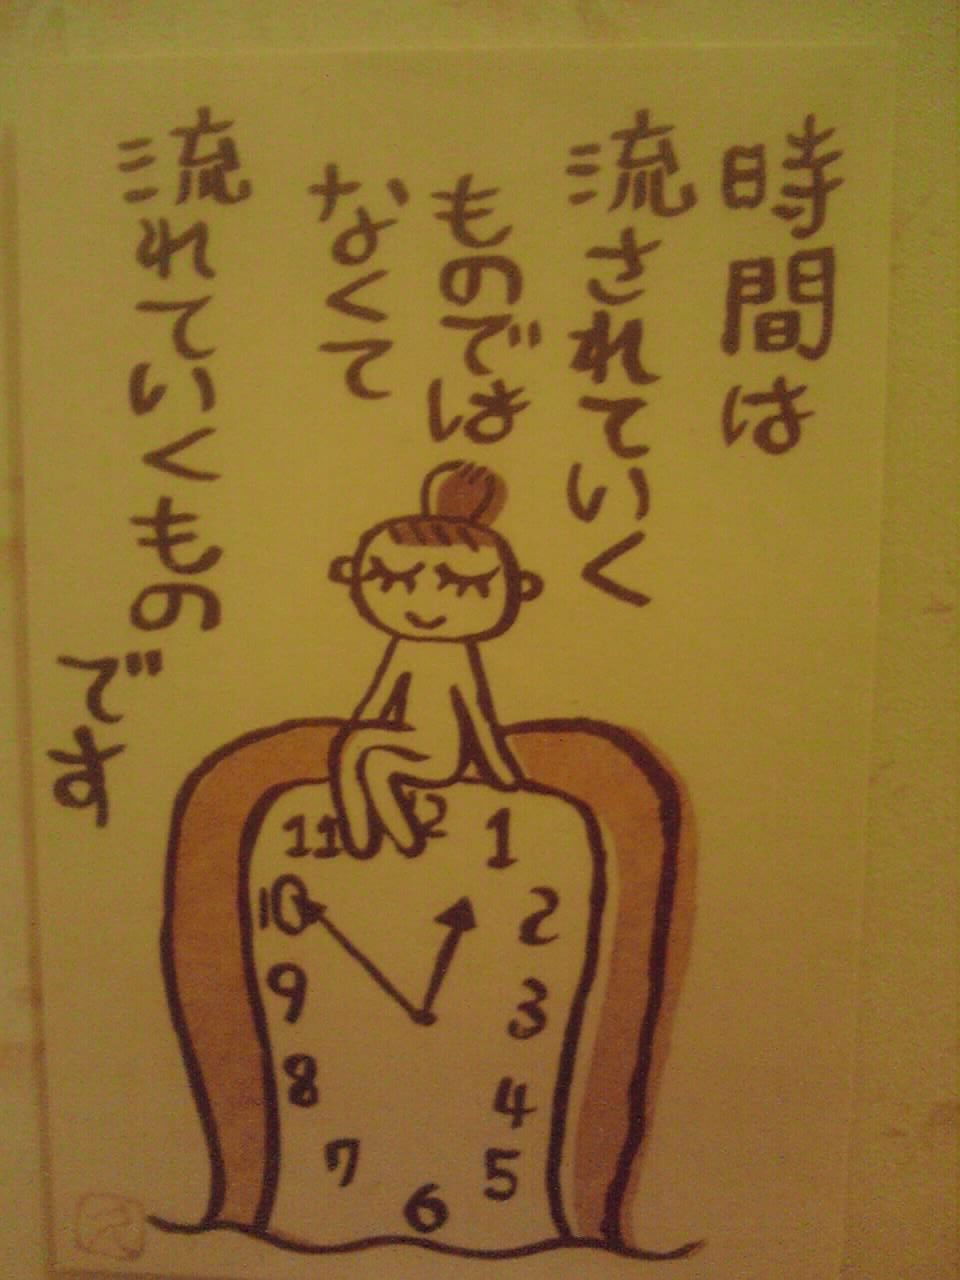 時間は
流されていく
ものでは
なくて
流れていくもの
です
11 12 1
10 2
9 3
8 4
7 5
6